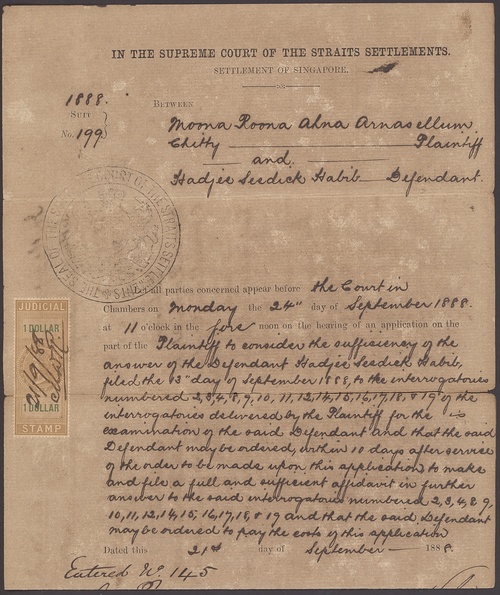 IN THE SUPREME COURT OF THE STRAITS SETTLEMENTS.
SETTLEMENT OF SINGAPORE.
1888.
SUIT
No. 199
BETWEEN
Moona Roona Ahna Arnasellum
Chitty Plaintiff
and
Hadjee Seedick Habib Defendant.
THE SEAL OF THE SUPREME COURT OF THE STRAITS SETTLEMENTS
Let all parties concerned appear before the Court in
Chambers on Monday the 24th day of September 1888.
at 11 o'clock in the fore noon on the hearing of an application on the
part of the Plaintiff to consider the sufficiency of the
answer of the Defendant Hadjee Seedick Habib,
filed the 13th day of September 1888, to the interrogatories
numbered 2, 3, 4, 8, 9, 10, 11, 12, 14, 15, 16, 17, 18, & 19 of the
interrogatories delivered by the Plaintiff for the
examination of the said Defendant and that the said
Defendant may be ordered, within 10 days after service
of the order to be made upon this application, to make
and file a full and sufficient affidavit in further
answer to the said interrogatories numbered 2, 3, 4, 8, 9,
10, 11, 12, 14, 15, 16, 17, 18, & 19 and that the said Defendant
may be ordered to pay the costs of this application
Dated this 21st day of September 1888.
Entered No. 145
JUDICIAL
1 DOLLAR
21/9/88
1 DOLLAR
STAMP